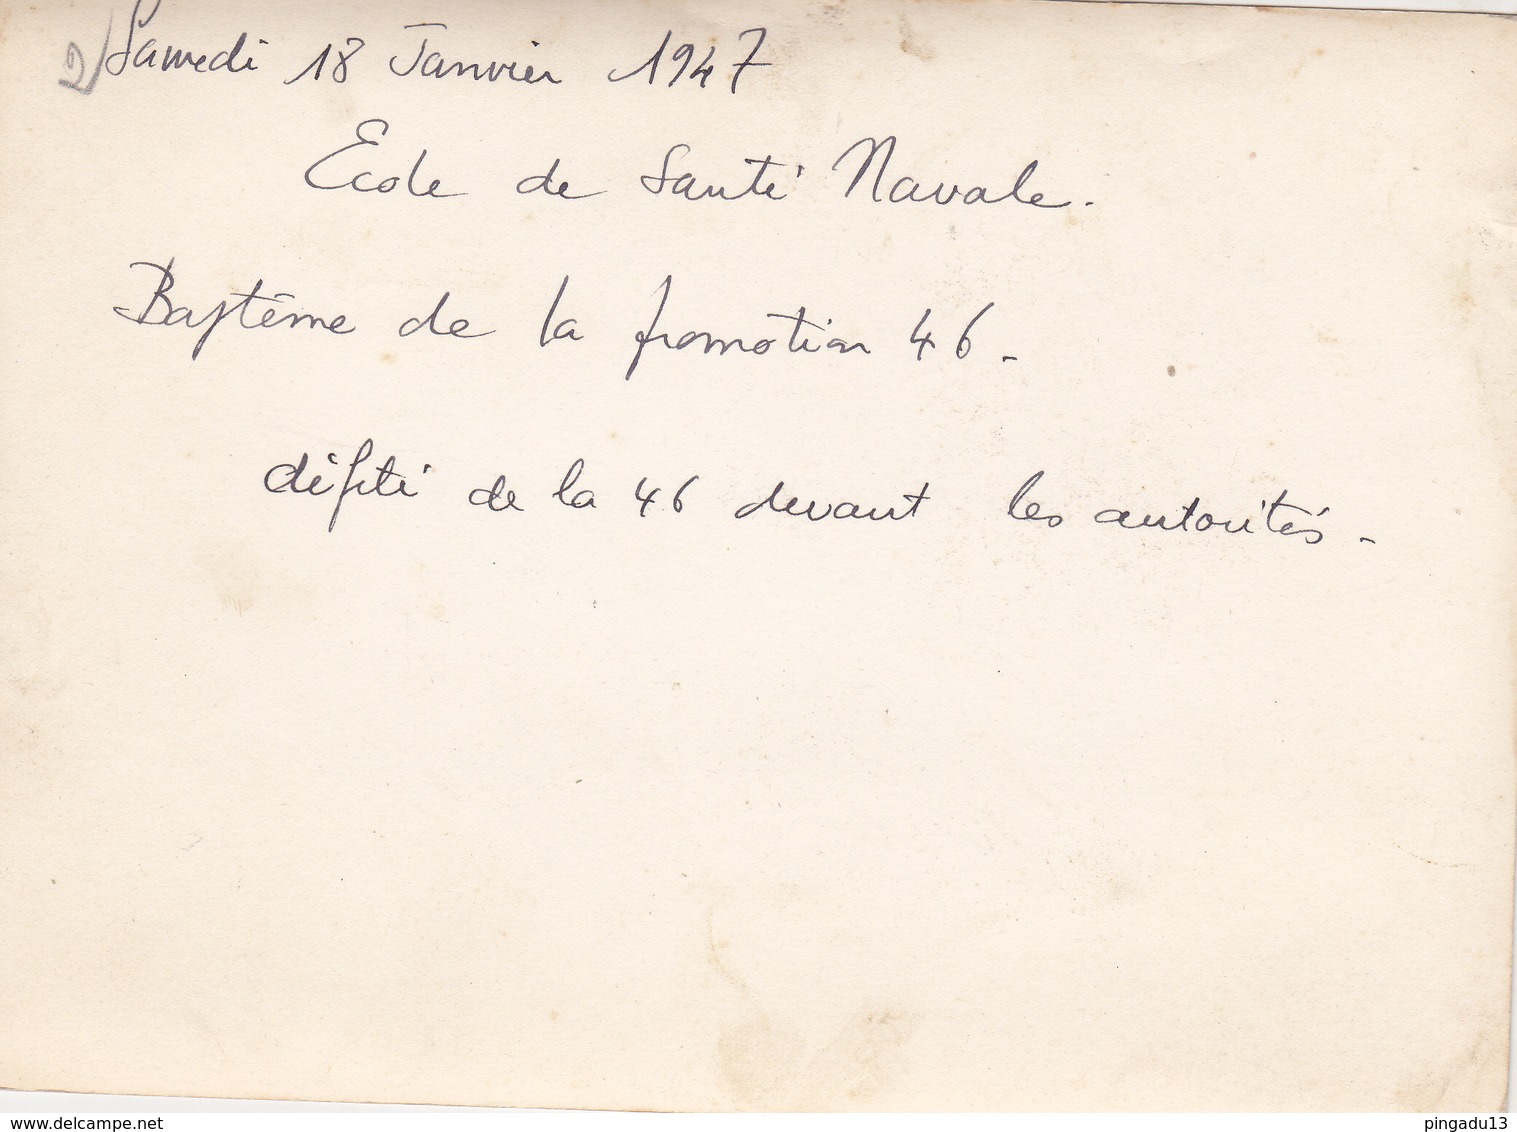 2 Samedi 18 Janvier 1947
Ecole de Santé Navale.
Baptême de la promotion 46 -
défilé de la 46 devant les autorités -
www.delcampe.net
pingadu13